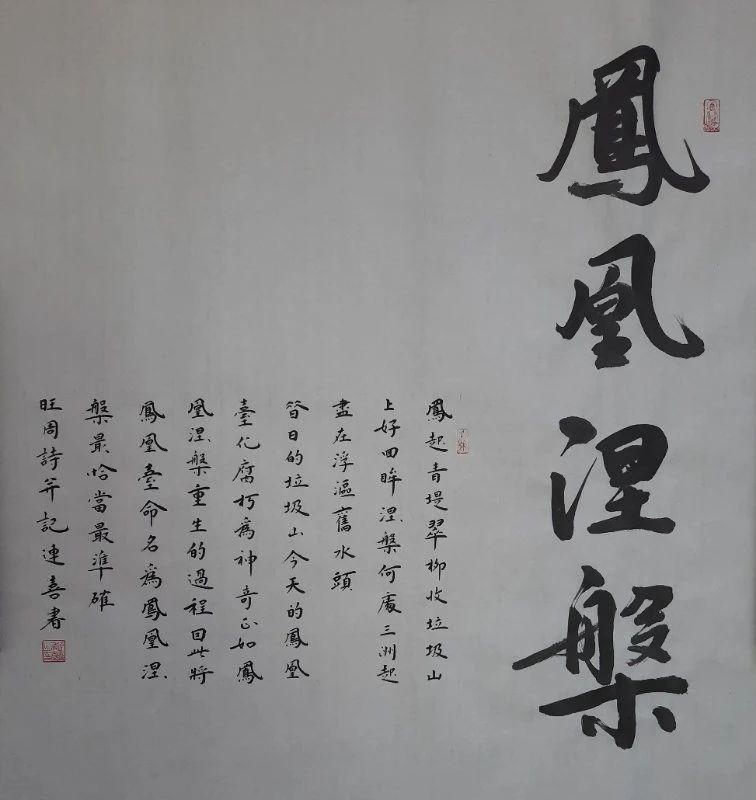 鳳凰涅槃
鳳起青堤翠柳收垃圾山
上好回眸涅槃何處三洲起
盡在浮漚舊水頭
昝日的垃圾山今天的鳳凰
臺化腐朽為神奇正如鳳
凰涅槃重生的過程因此將
鳳凰臺命名為鳳凰涅
槃最恰當最準確
旺周詩并記連喜書